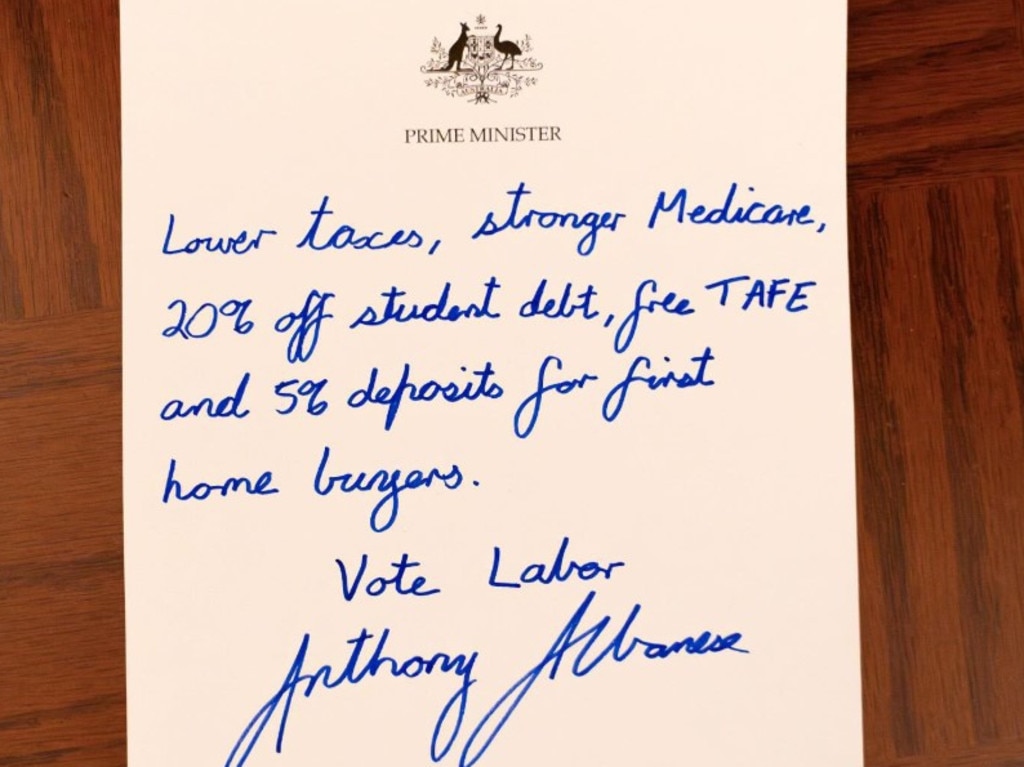 AUSTRALIA
PRIME MINISTER
Lower taxes, stronger Medicare,
20% off student debt, free TAFE
and 5% deposits for first
home buyers.
Vote Labor
Anthony Albanese